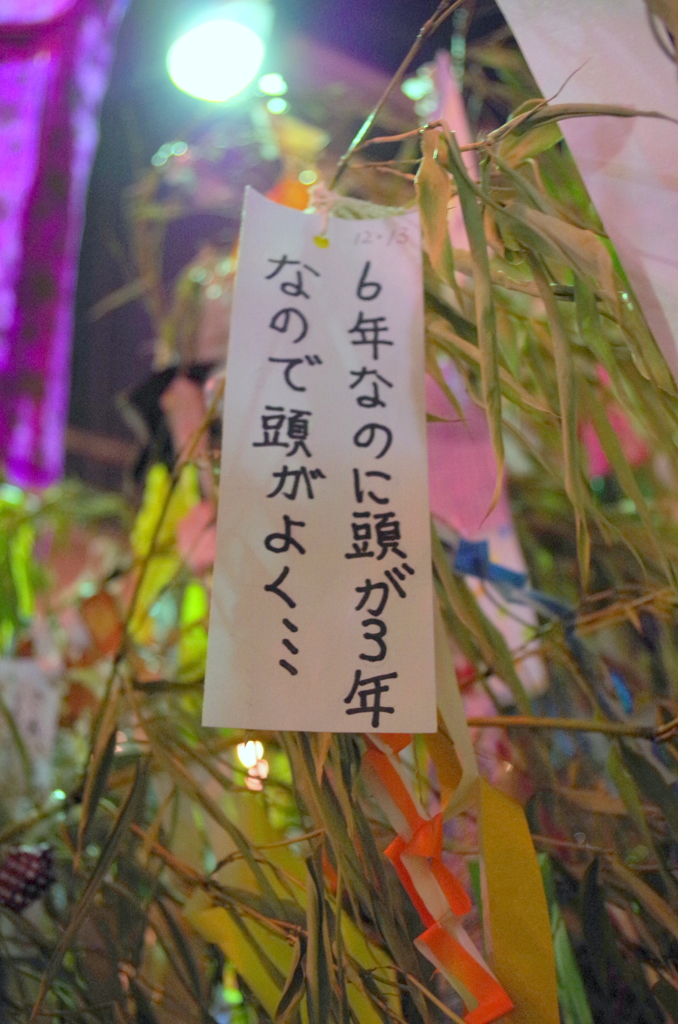 12.13
6年なのに頭が3年
なので頭がよく…